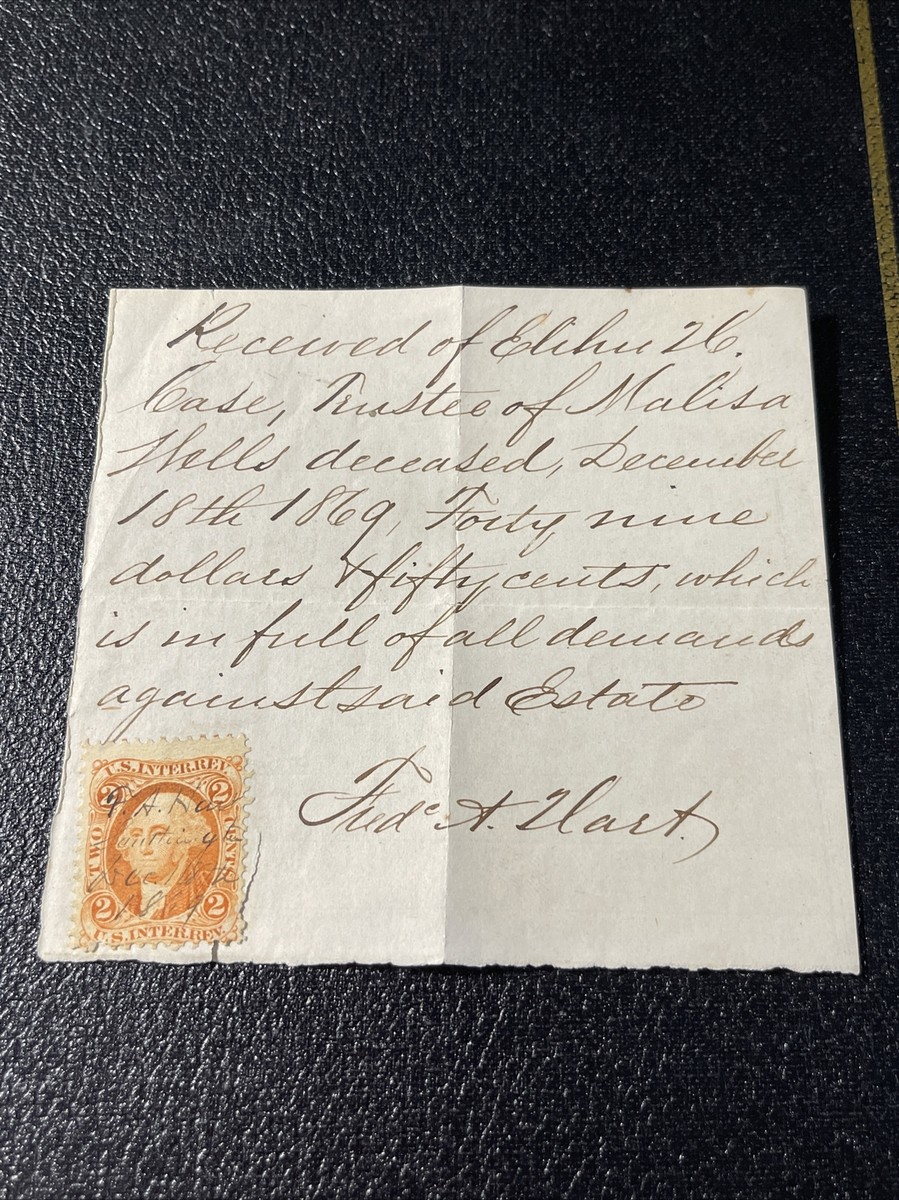 Received of Elihu H.
Case, Trustee of Malisa
Wells deceased, December
18th 1869, Forty nine
dollars & fifty cents, which
is in full of all demands
against said Estate
Fredc A. Hart
U.S. INTER. REV.
2 2
TWO CENTS
F. A. Hart
Dec 18th
1869
2 2
U.S. INTER. REV.